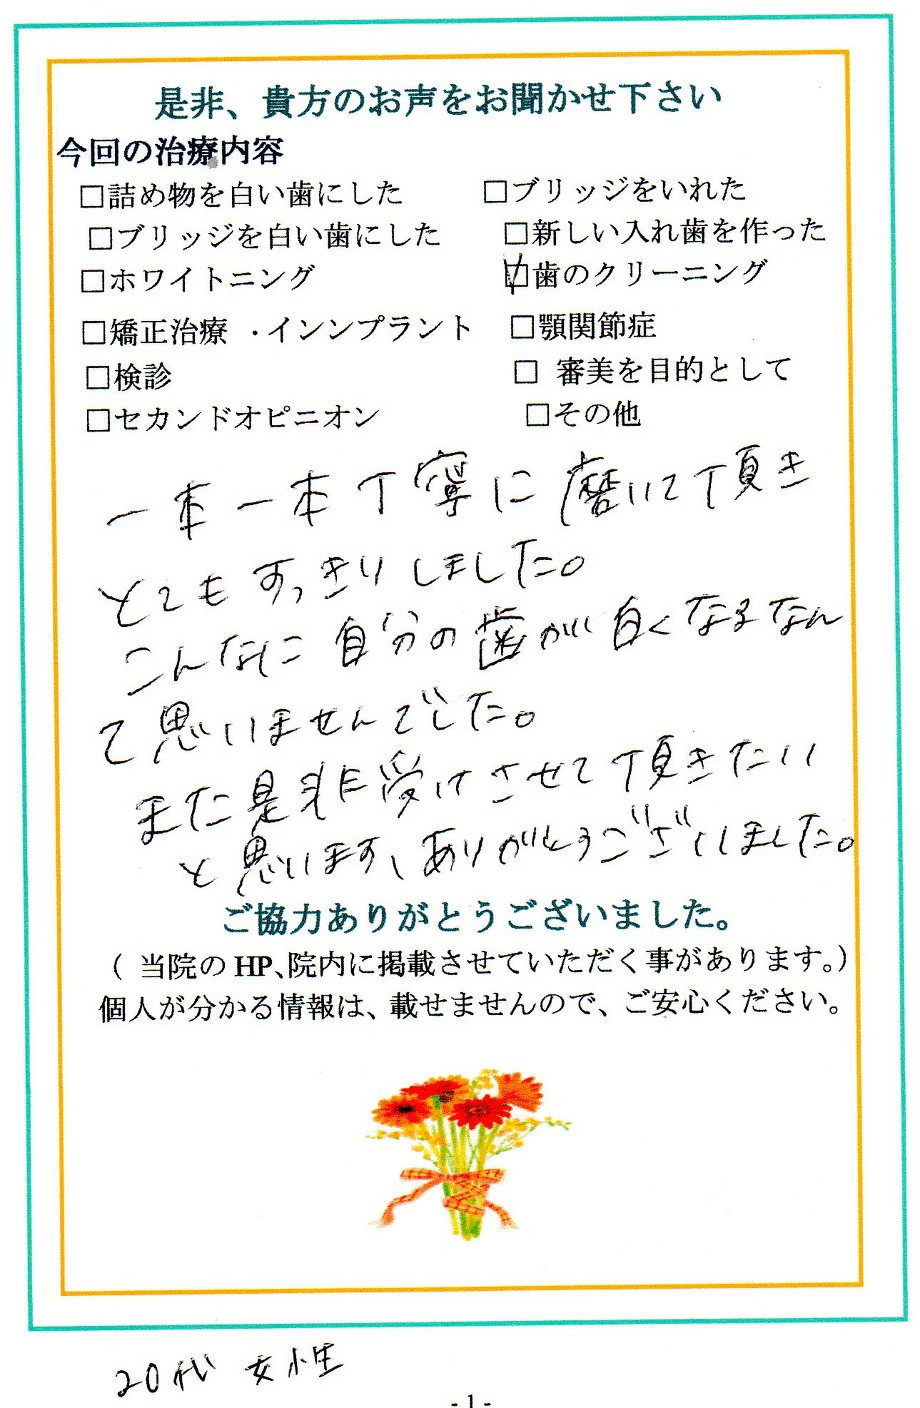 是非、貴方のお声をお聞かせ下さい
今回の治療内容
□詰め物を白い歯にした □ブリッジをいれた
□ブリッジを白い歯にした □新しい入れ歯を作った
□ホワイトニング ☑歯のクリーニング
□矯正治療 ・インンプラント □顎関節症
□検診 □ 審美を目的として
□セカンドオピニオン □その他
一本一本丁寧に磨いて頂き
とてもすっきりしました。
こんなに自分の歯が白くなるなん
て思いませんでした。
また是非受けさせて頂きたい
と思います、ありがとうございました。
ご協力ありがとうございました。
( 当院の HP、院内に掲載させていただく事があります。)
個人が分かる情報は、載せませんので、ご安心ください。
20代 女性
- 1 -